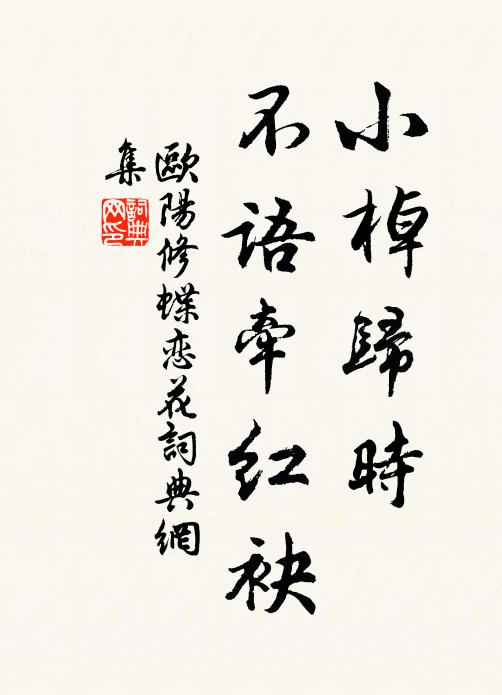 小棹歸時
不語牽紅袂
歐陽修蝶恋花詞典網
集
詞典
网印